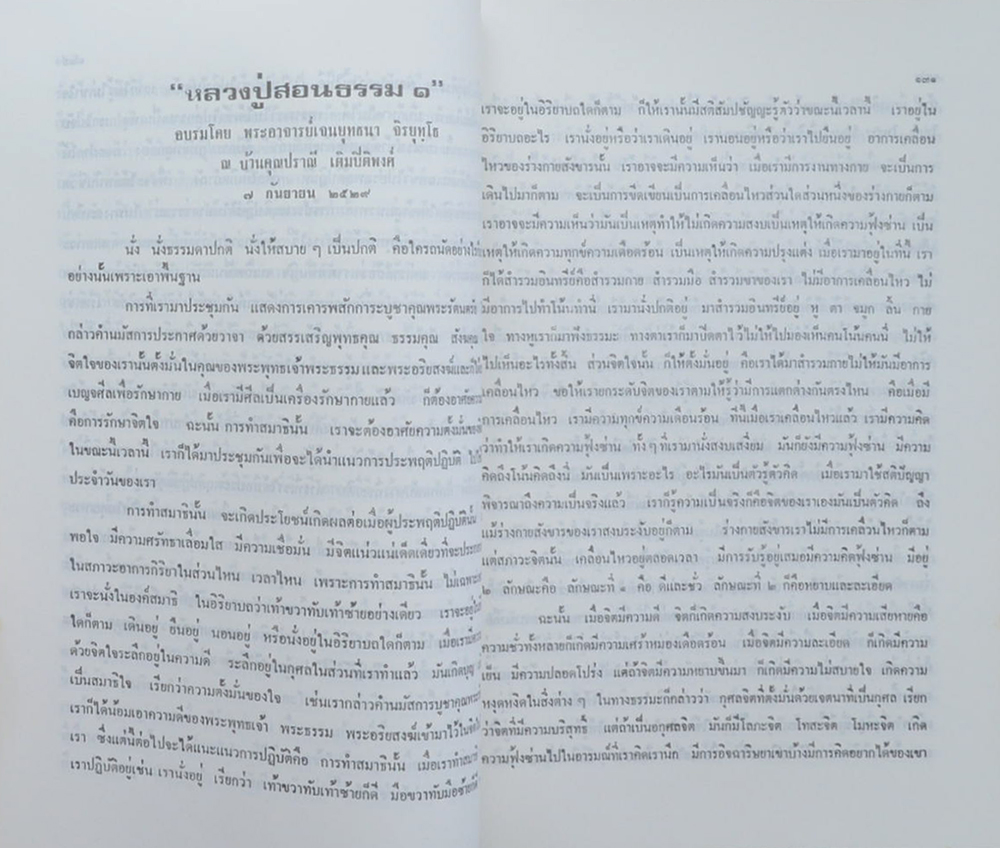 “หลวงปู่สอนธรรม ๑”
อบรมโดย พระอาจารย์เจนยุทธนา จิรยุทฺโธ
ณ บ้านคุณปราณี เติมปิติพงศ์
๗ กันยายน ๒๕๒๙
นั่ง นั่งธรรมดาปกติ นั่งให้สบาย ๆ เป็นปกติ คือใครถนัดอย่างไร
อย่างนั้นเพราะเอาพื้นฐาน
การที่เรามาประชุมกัน แสดงการเคารพสักการะบูชาคุณพระรัตนตรัย
กล่าวคำนมัสการประกาศด้วยวาจา ด้วยสรรเสริญพุทธคุณ ธรรมคุณ สังฆคุณ
จิตใจของเรานั้นตั้งมั่นในคุณของพระพุทธเจ้าพระธรรม และพระอริยสงฆ์และก็ได้
เบญจศีลเพื่อรักษากาย เมื่อเรามีศีลเป็นเครื่องรักษากายแล้ว ก็ต้องอาศัย
คือการรักษาจิตใจ ฉะนั้น การทำสมาธินั้น เราจะต้องอาศัยความตั้งมั่นของ
ในขณะนี้เวลานี้ เราก็ได้มาประชุมกันเพื่อจะได้นำแนวการประพฤติปฏิบัติ
ประจำวันของเรา
การทำสมาธินั้น จะเกิดประโยชน์เกิดผลต่อเมื่อผู้ประพฤติปฏิบัตินั้น
พอใจ มีความศรัทธาเลื่อมใส มีความเชื่อมั่น มีจิตแน่วแน่เด็ดเดี่ยวที่จะ
ในสภาวะอาการกิริยาในส่วนไหน เวลาไหน เพราะการทำสมาธินั้น ไม่เฉพาะ
เราจะนั่งในองค์สมาธิ ในอิริยาบถว่าเท้าขวาทับเท้าซ้ายอย่างเดียว เราจะอยู่
ใดก็ตาม เดินอยู่ ยืนอยู่ นอนอยู่ หรือนั่งอยู่ในอิริยาบถใดก็ตาม เมื่อเรา
ด้วยจิตใจระลึกอยู่ในความดี ระลึกอยู่ในกุศลในส่วนที่เราทำแล้ว มันเกิดบุญ
เป็นสมาธิใจ เรียกว่าความตั้งมั่นของใจ เช่นเรากล่าวคำนมัสการบูชาคุณพระ
เราก็ได้น้อมเอาความดีของพระพุทธเจ้า พระธรรม พระอริยสงฆ์เข้ามาไว้ในจิต
เรา ซึ่งแต่นี้ต่อไปจะได้แนะแนวการปฏิบัติคือ การทำสมาธินั้น เมื่อเราทำสมาธิ
เราปฏิบัติอยู่เช่น เรานั่งอยู่ เรียกว่า เท้าขวาทับเท้าซ้ายก็ดี มือขวาทับมือซ้ายก็ดี
๑๓๑
เราจะอยู่ในอิริยาบถใดก็ตาม ก็ให้เรานั้นมีสติสัมปชัญญะรู้ตัวว่าขณะนี้เวลานี้ เราอยู่ใน
อิริยาบถอะไร เรานั่งอยู่หรือว่าเราเดินอยู่ เรานอนอยู่หรือว่าเราไปยืนอยู่ อาการเคลื่อน
ไหวของร่างกายสังขารนั้น เราอาจจะมีความเห็นว่า เมื่อเรามีการงานทางกาย จะเป็นการ
เดินไปมาก็ตาม จะเป็นการขีดเขียนเป็นการเคลื่อนไหวส่วนใดส่วนหนึ่งของร่างกายก็ตาม
เราอาจจะมีความเห็นว่ามันเป็นเหตุทำให้ไม่เกิดความสงบเป็นเหตุให้เกิดความฟุ้งซ่าน เป็น
เหตุให้เกิดความทุกข์ความเดือดร้อน เป็นเหตุให้เกิดความปรุงแต่ง เมื่อเรามาอยู่ในที่นี้ เรา
ก็ได้สำรวมอินทรีย์คือสำรวมกาย สำรวมมือ สำรวมขาของเรา ไม่มีอาการเคลื่อนไหว ไม่
มีอาการไปทำโน้นทำนี่ เรามานั่งปกติอยู่ มาสำรวมอินทรีย์อยู่ หู ตา จมูก ลิ้น กาย
ใจ ทางหูเราก็มาฟังธรรมะ ทางตาเราก็มาปิดตาไว้ไม่ให้ไปมองเห็นคนโน้นคนนี้ ไม่ให้
ไปเห็นอะไรทั้งสิ้น ส่วนจิตใจนั้น ก็ให้ตั้งมั่นอยู่ คือเราได้มาสำรวมกายไม่ให้มันมีอาการ
เคลื่อนไหว ขอให้เรายกระดับจิตของเราตามให้รู้ว่ามีการแตกต่างกันตรงไหน คือเมื่อมี
การเคลื่อนไหว เรามีความทุกข์ความเดือนร้อน ทีนี้เมื่อเราเคลื่อนไหวแล้ว เรามีความคิด
ว่าทำให้เราเกิดความฟุ้งซ่าน ทั้ง ๆ ที่เรามานั่งสงบเสงี่ยม มันก็ยังมีความฟุ้งซ่าน มีความ
คิดถึงโน้นคิดถึงนี่ มันเป็นเพราะอะไร อะไรมันเป็นตัวรู้ตัวคิด เมื่อเรามาใช้สติปัญญา
พิจารณาถึงความเป็นจริงแล้ว เราก็รู้ความเป็นจริงก็คือจิตของเราเองมันเป็นตัวคิด ถึง
แม้ร่างกายสังขารของเราสงบระงับอยู่ก็ตาม ร่างกายสังขารเราไม่มีการเคลื่อนไหวก็ตาม
แต่สภาวะจิตนั้น เคลื่อนไหวอยู่ตลอดเวลา มีการรับรู้อยู่เสมอมีความคิดฟุ้งซ่าน มีอยู่
๒ ลักษณะคือ ลักษณะที่ ๑ คือ ดีและชั่ว ลักษณะที่ ๒ ก็คือหยาบและละเอียด
ฉะนั้น เมื่อจิตมีความดี จิตก็เกิดความสงบระงับ เมื่อจิตมีความเสียหายคือ
ความชั่วทั้งหลายก็เกิดมีความเศร้าหมองเดือดร้อน เมื่อจิตมีความละเอียด ก็เกิดมีความ
เย็น มีความปลอดโปร่ง แต่ถ้าจิตมีความหยาบขึ้นมา ก็เกิดมีความไม่สบายใจ เกิดความ
หงุดหงิดในสิ่งต่าง ๆ ในทางธรรมะก็กล่าวว่า กุศลจิตที่ตั้งมั่นด้วยเจตนาที่เป็นกุศล เรียก
ว่าจิตที่มีความบริสุทธิ์ แต่ถ้าเป็นอกุศลจิต มันก็มีโลภะจิต โทสะจิต โมหะจิต เกิด
ความฟุ้งซ่านไปในอารมณ์ที่เราคิดเรานึก มีการอิจฉาริษยาเขาบ้างมีการคิดอยากได้ของเขา